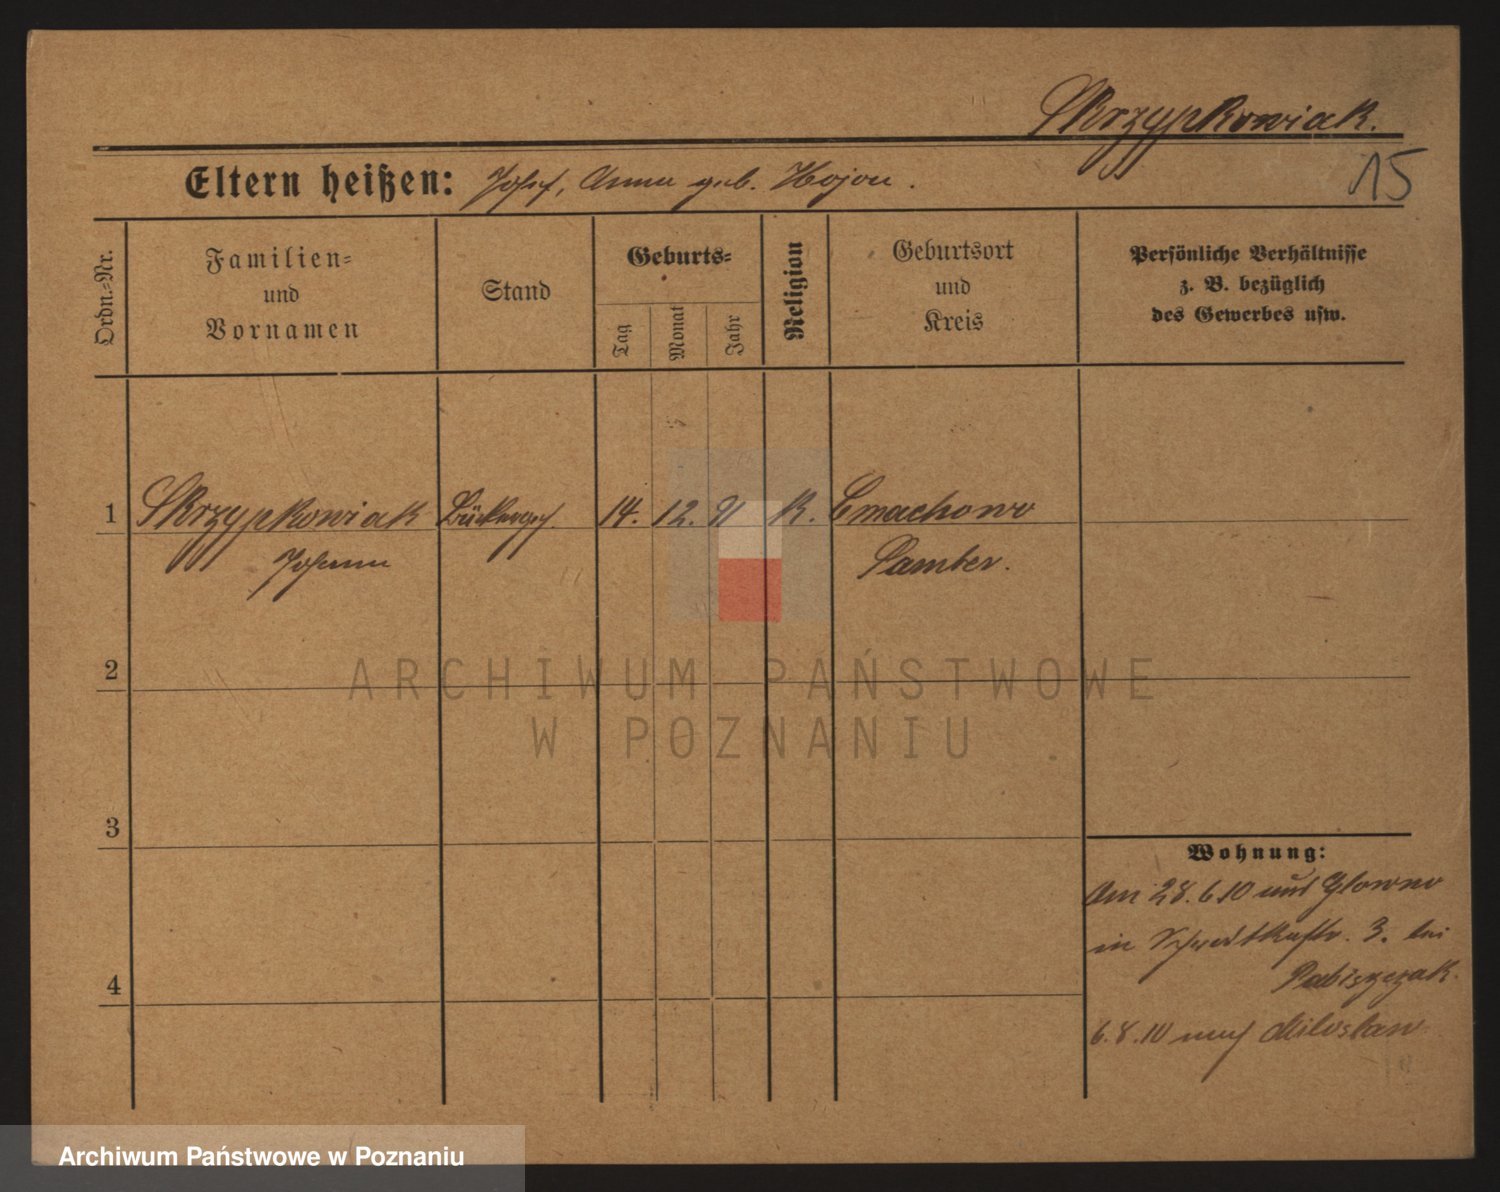 Skrzypkowiak.
15
Eltern heißen: Josef, Anna geb. Hojan.
Ordn.-Nr.
Familien-
und
Vornamen
Stand
Geburts-
Tag
Monat
Jahr
Religion
Geburtsort
und
Kreis
Persönliche Verhältnisse
z. B. bezüglich
des Gewerbes usw.
1 Skrzypkowiak Bäckerges. 14. 12. 91 K. Cmachowo
Johann Samter.
2
ARCHIWUM PAŃSTWOWE
W POZNANIU
3
Wohnung:
Am 28.6.10 aus Glowno
in 3. bei
6.8.10 nach Miloslaw
4
Archiwum Państwowe w Poznaniu